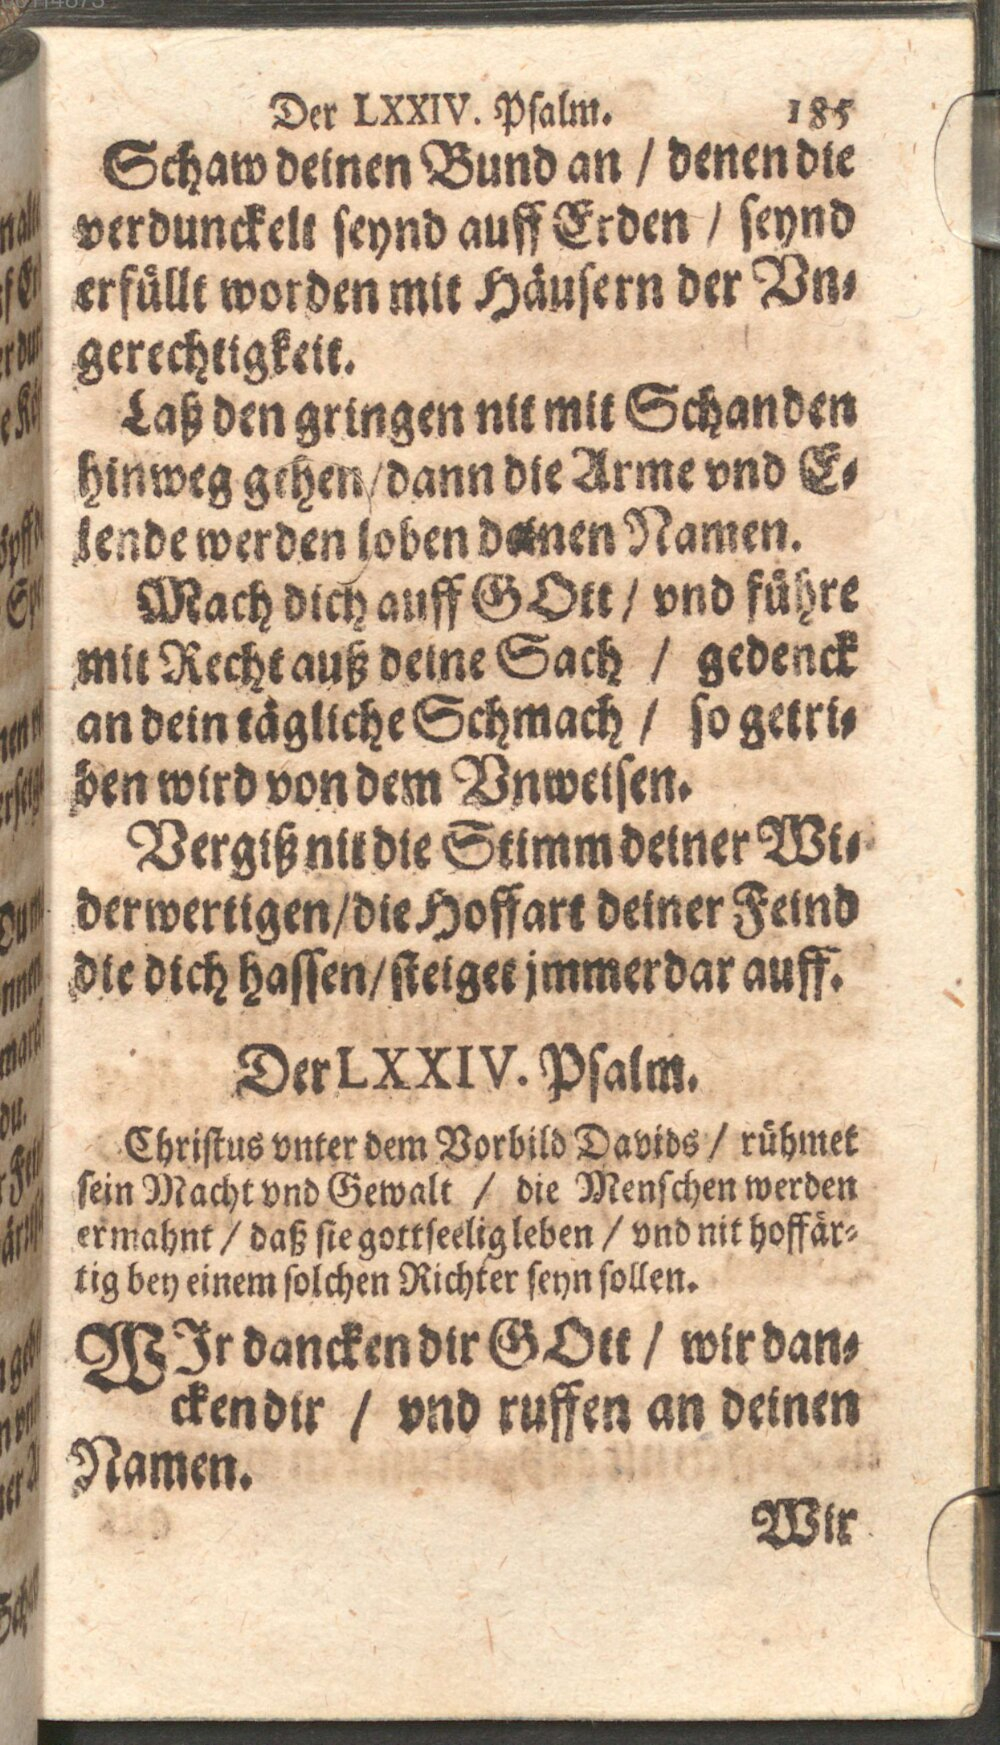 Der LXXIV. Psalm. 185
Schaw deinen Bund an / denen die
verdunckelt seynd auff Erden / seynd
erfüllt worden mit Häusern der Vn-
gerechtigkeit.
Laß den gringen nit mit Schanden
hinweg gehen / dann die Arme vnd E-
lende werden loben deinen Namen.
Mach dich auff GOtt / vnd führe
mit Recht auß deine Sach / gedenck
an dein tägliche Schmach / so getri-
ben wird von dem Vnweisen.
Vergiß nit die Stimm deiner Wi-
derwertigen / die Hoffart deiner Feind
die dich hassen / steiget jmmerdar auff.
Der LXXIV. Psalm.
Christus vnter dem Vorbild Davids / rühmet
sein Macht vnd Gewalt / die Menschen werden
ermahnt / daß sie gottseelig leben / vnd nit hoffär-
tig bey einem solchen Richter seyn sollen.
WIr dancken dir GOtt / wir dan-
cken dir / vnd ruffen an deinen
Namen.
Wir